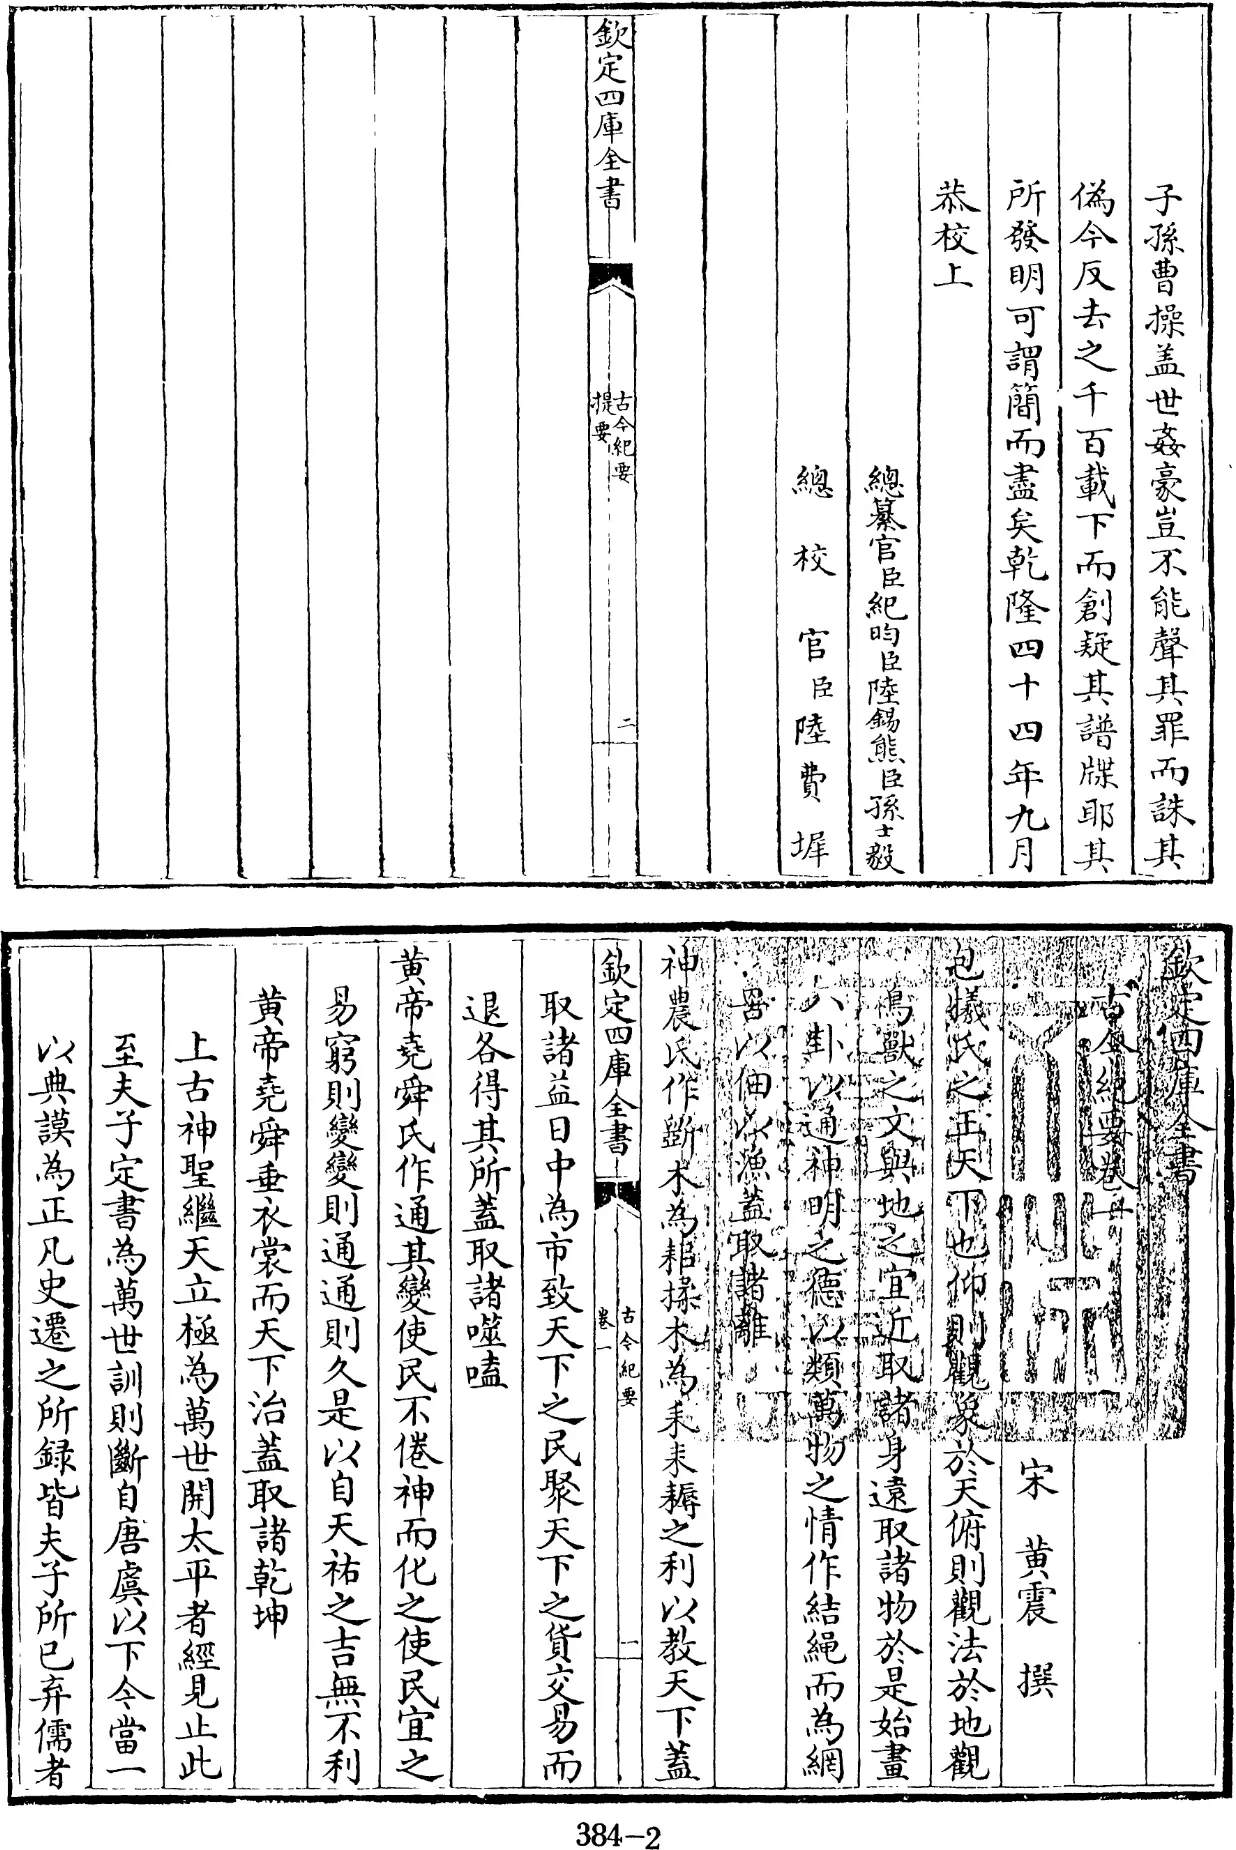 子孫曹操盖世姦豪豈不能聲其罪而誅其
偽今反去之千百載下而創疑其譜牒耶其
所發明可謂簡而盡矣乾隆四十四年九月
恭校上
總纂官臣紀昀臣陸錫熊臣孫士毅
總校官臣陸費墀
欽定四庫全書
古今紀要
提要
二
欽定四庫全書
古今紀要卷一
宋 黄震 撰
包犧氏之王天下也仰則觀象於天俯則觀法於地觀
鳥獸之文與地之宜近取諸身遠取諸物於是始畫
八卦以通神明之德以類萬物之情作結繩而為網
罟以佃以漁蓋取諸離
神農氏作斲木為耜揉木為耒耒耨之利以教天下蓋
欽定四庫全書
古今紀要
卷一
一
取諸益日中為市致天下之民聚天下之貨交易而
退各得其所蓋取諸噬嗑
黄帝堯舜氏作通其變使民不倦神而化之使民宜之
易窮則變變則通通則久是以自天祐之吉無不利
黄帝堯舜垂衣裳而天下治蓋取諸乾坤
上古神聖繼天立極為萬世開太平者經見止此
至夫子定書為萬世訓則斷自唐虞以下今當一
以典謨為正凡史遷之所録皆夫子所已弃儒者
384-2